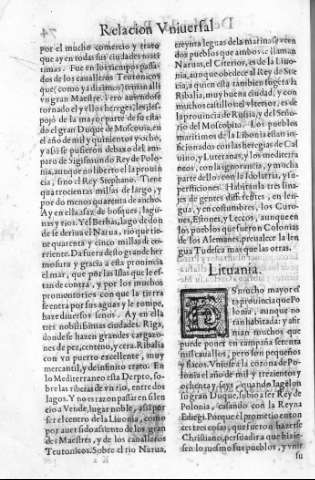 Relacion Vniuersal
por el mucho comercio y trato
que ay en todas sus ciudades maritimas
Fue en los tiempos passados
de los caualleros Teutonicos
que (como ya diximos) tenian alli
vn gran Maestre. Pero auiendose
tornado el y ellos hereges, les despojó
de la mayor parte de su estado
el gran Duque de Moscouia, en
el año de mil y quinientos y ocho,
y assi se pusieron debaxo del amparo
de Sigismundo Rey de Polonia,
aunque no liberto la prouincia
, sino el Rey Stephano. Tiene
quatrocientas millas de largo, y
por do menos quarenta de ancho.
Ay en ella assaz de bosques, lagunas
y rios. Vel Beibas, lago de donde
se deriua el Narua, rio que tiene
quarenta y cinco millas de corriente.
Da fuera desto grande hermosura
y gracia a esta prouincia
el mar, que por las Islas que le estan
de contra, y por los muchos
promontorios con que la tierra
se entra por sus aguas y le rompe,
haze diuersos senos. Ay en ella
tres nobilissimas ciudades. Riga,
donde se hazen grandes cargazones
de pez, centeno, y cera. Ribalia
con vn puerto excellente, muy
mercantil, y de infinito trato. En
lo Mediterraneo esta Derpto, sobre
las riberas de vn rio, entre dos
lagos. Y no es razon passar en silencio
a Vende, lugar noble, assi por
ser el centro de la Liuonia, como
por auer sido assiento de los grandes
Maestres, y de los caualleros
Teutonicos. Sobre el rio Narua,
treynta leguas de la marina, se veen
dos pueblos que ambos se llaman
Naruas, el Citerior, es de la Liuonia,
aunque obedece al Rey de Suecia,
a quien esta tambien sugeta la
Ribalia, muy buena ciudad, y con
muchos castillos: el vlterior, es de
la prouincia de Rusia, y del Señorio
del Moscobito. Los pueblos
maritimos de la Libonia estan inficionados
con las heregias de Caluino,
y Luterana; y los mediterraneos
, con la ignorancia, y mucha
parte dellos con la Idolatria, y supersticiones
. Habitan la tres linages
de gentes differentes, en lengua,
y en costumbres, los Curones,
Estones, y Lecços, aunque en
los pueblos que fueron Colonias
de los Alemanes, preualece la lengua
Tudesca mas que las otras.
Lituania.
ES mucho mayor esta
prouincia que Polonia
, aunque no
tan habitada: y afirman
muchos que
puede poner en campaña setenta
mil cauallos, pero son pequeños
y flacos. Vniose a la corona de Polonia
el año de mil y trezientos y
ochenta y seys, quando Iagelon
su gran Duque, subio a ser Rey de
Polonia, casando con la Reyna
Eduigi. Porque el prometio entonces
tres cosas, que fueron hazerse
Christiano, persuadir a que hiziessen
lo mesmo sus pueblos, y vnir
su